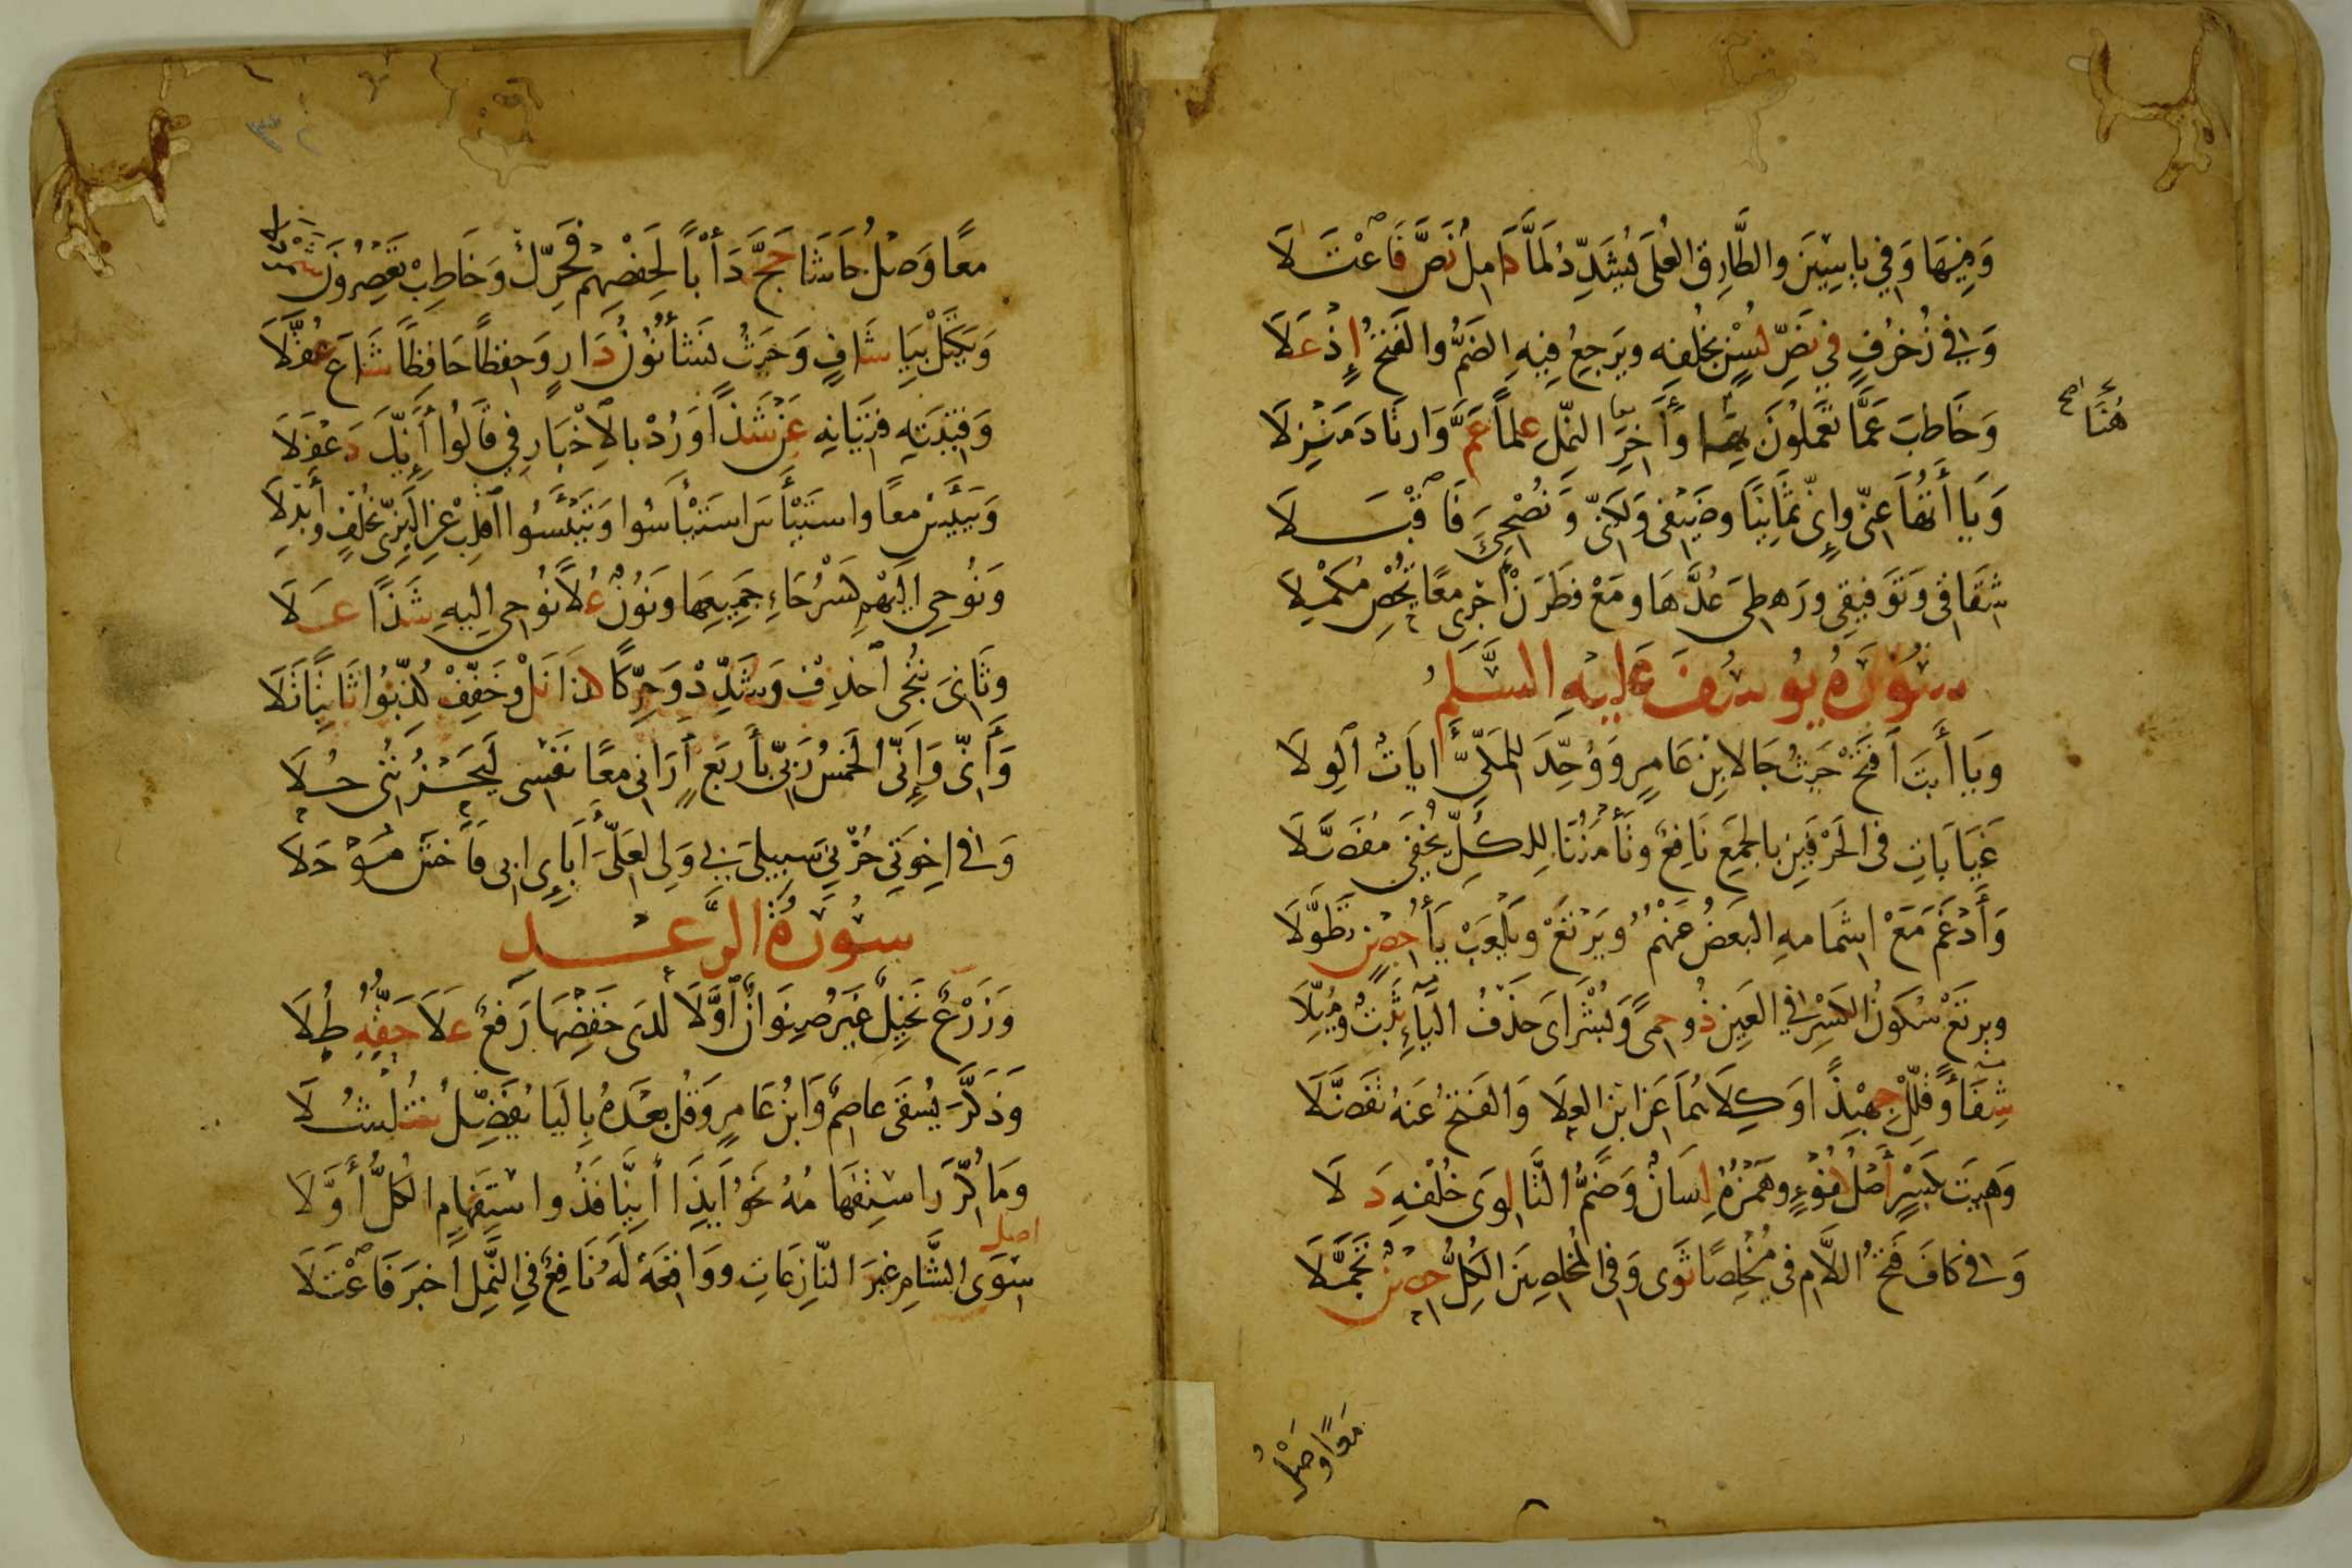 وَفِيهَا وَفِي يَاسِينَ وَالطَّارِقِ العُلَى يُشَدِّدُ لَمَّا كَامِلٌ نَصَّ فَاعْتَلَا
وَفِي زُخْرُفٍ فِي نَصِّ لُسْنٍ بِخُلْفِهِ وَيَرْجِعُ فِيهِ الضَمُّ وَالفَتْحُ إِذْ عَلَا
وَخَاطَبَ عَمَّا تَعْمَلُونَ بِهَا وَآخِرَ النَّمْلِ عِلْمًا عَمَّ وَارْتَادَ مَنْزِلَا
هُنَا صح
وَيَا أَتُهَا عَنِّي وَإِنِّي ثَمَانِيًا وَضَيْفِي وَلَكِنِّي وَنُصْحِيَ فَاقْبَلَا
شِقَاقِي وَتَوْفِيقِي وَرَهْطِيَ عُدَّهَا وَمَعْ فَطَرَنْ أَجْرِي مَعًا تُحْصِ مُكْمِلَا
سُورَةُ يُوسُفَ عَلَيْهِ السَّلَمُ
وَيَا أَبَتَ افْتَحْ حَيْثُ جَا لِابْنِ عَامِرٍ وَوُحِّدَ لِلْمَكِّيِّ آيَاتُ الْوِلَا
غَيَابَاتِ فِي الحَرْفَيْنِ بِالجَمْعِ نَافِعٌ وَتَأْمَنُنَا لِلْكُلِّ يُخْفَى مُفَصَّلَا
وَأَدْغَمَ مَعْ إِشْمَامِهِ البَعْضُ عَنْهُمُ وَيَرْتَعْ وَيَلْعَبْ يَاءُ حِصْنٍ تَطَوَّلَا
وَيَرْتَعْ سُكُونُ الكَسْرِ فِي العَيْنِ ذُو حِمًى وَبُشْرَايَ حَذْفُ اليَاءِ ثَبْتٌ وَمُيِّلَا
شِفَاءً وَقَلِّلْ جِهْبِذًا وَكِلَاهُمَا عَنِ ابْنِ العَلَا وَالفَتْحُ عَنْهُ تَفَضَّلَا
وَهَيْتَ بِكَسْرٍ أَصْلُ كُفْؤٍ وَهَمْزُهُ لِسَانٌ وَضَمُّ التَّا لِوَى خُلْفِهِ دَلَا
وَفِي كَافَ فَتْحُ اللَّامِ فِي مُخْلِصًا ثَوَى وَفِي المُخْلَصِينَ الكُلِّ حِصْنٌ تَجَمَّلَا
مَعًا وَصْلُ
٣٢
مَعًا وَصْلُ حَاشَا حَجَّ دَأْبًا لِحَفْصِهِمْ فَحَرِّكْ وَخَاطِبْ تَعْصِرُونَ شَمَرْدَلَا
وَيَكْتَلْ بِيَا شَافٍ وَحَيْثُ نَشَاءُ نُونُ دَارٍ وَحِفْظًا حَافِظًا شَاعَ عُقَّلَا
وَفِتْيَتِهِ فِتْيَانِهِ عَنْ شَذًا وَرُدْ بِالِاخْبَارِ فِي قَالُوا أَئِنَّكَ دَغْفَلَا
وَيَيْئَسْ مَعًا وَاسْتَيْأَسَ اسْتَيْأَسُوا وَتَيْئَسُوا اقْلِبْ عَنِ البَزِّي بِخُلْفٍ وَأَبْدِلَا
وَنُوحِي إِلَيْهِمْ كَسْرُ حَاءِ جَمِيعِهَا وَنُونٌ عُلًا نُوحِي إِلَيْهِ شَذًا عَلَا
وَثَانِيَ نُنْجِي احْذِفْ وَشَدِّدْ وَحَرِّكًا كَذَا نَلْ وَخَفِّفْ كُذِّبُوا ثَابِتًا تَلَا
وَأَنِّي وَإِنِّي الخَمْسُ رَبِّي بِأَرْبَعٍ أَرَانِي مَعًا نَفْسِي لَيَحْزُنُنِي حُلَا
وَفِي إِخْوَتِي حُزْنِي سَبِيلِيَ بِي وَلِي لَعَلِّي آبَائِي أَبِي فَاخْشَ مَوْحَلَا
سُورَةُ الرَّعْدِ
وَزَرْعٌ نَخِيلٌ غَيْرُ صِنْوَانٌ أَوَّلَا لَدَى خَفْضِهَا رَفْعٌ عَلَا حَقُّهُ طُلَا
وَذَكَّرَ يُسْقَى عَاصِمٌ وَابْنُ عَامِرٍ وَقُلْ بَعْدَهُ بِاليَا يُفَضِّلُ شُلْشُلَا
وَمَا كُرِّرَ اسْتِفْهَامُهُ نَحْوُ أَئِذَا أَئِنَّا فَذُو اسْتِفْهَامٍ الكُلُّ أَوَّلَا
اصل
سِوَى الشَّامِ غَيْرَ النَّازِعَاتِ وَوَاقِعَةْ لَهُ نَافِعٌ فِي النَّمْلِ أَخْبَرَ فَاعْتَلَا